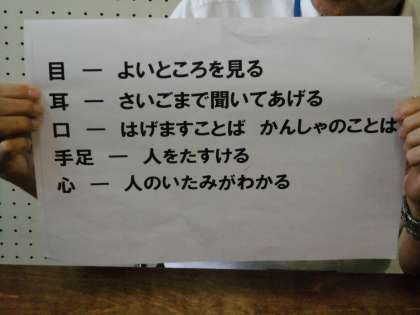 目 ― よいところを見る
耳 ― さいごまで聞いてあげる
口 ― はげますことば　かんしゃのことは
手足 ― 人をたすける
心 ― 人のいたみがわかる